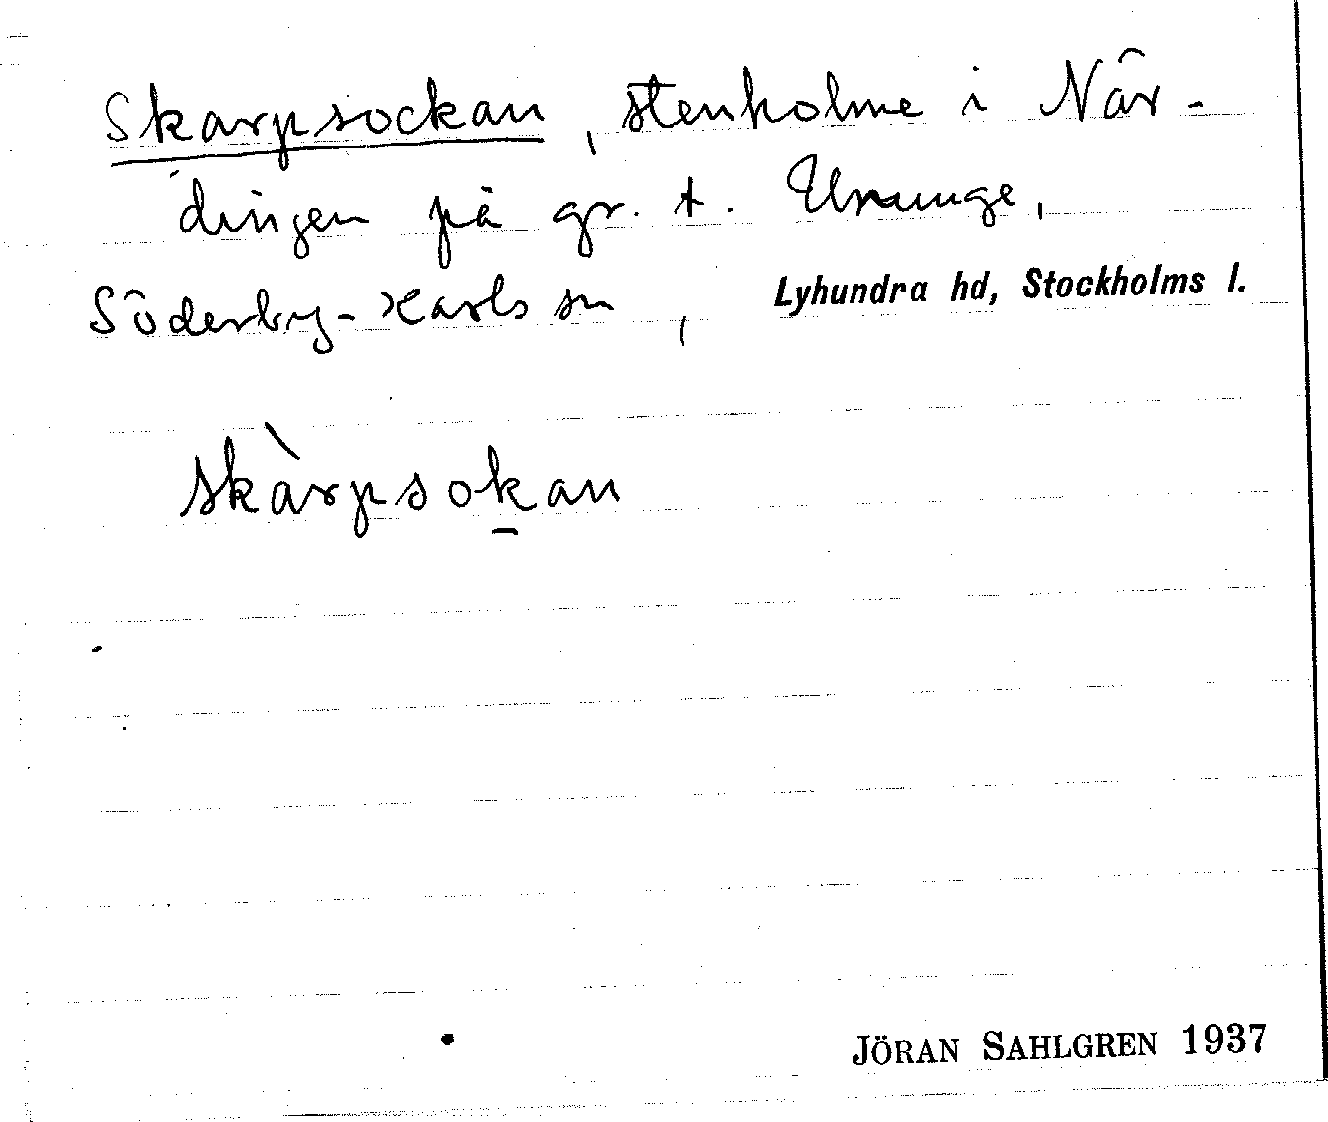 Skarpsockan, stenholme i När-
dingen på gr. t. Ununge,
Söderby-Karls sn, Lyhundra hd, Stockholms l.
skàrpsok̠an
JÖRAN SAHLGREN 1937